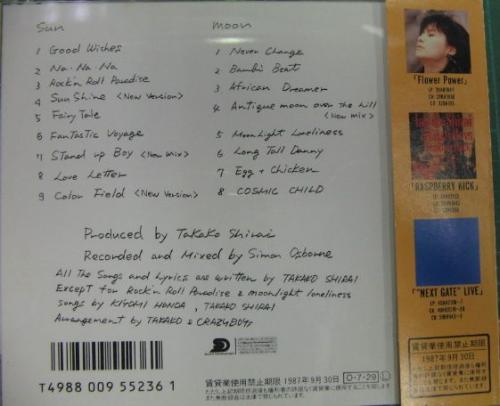 Sun
1 Good Wishes
2 Na・Na・Na
3 Rock'n Roll Paradise
4 Sun Shine <New Version>
5 Fairy Tale
6 Fantastic Voyage
7 Stand up Boy <New Mix>
8 Love Letter
9 Color Field <New Version>
Moon
1 Never Change
2 Bambi Beat
3 African Dreamer
4 Antique moon over the hill
<New mix>
5 MoonLight Loneliness
6 Long Tall Danny
7 Egg + Chicken
8 COSMIC CHILD
Produced by Takako Shirai
Recorded and Mixed by Simon Osborne
All the Songs and Lyrics are written by TAKAKO SHIRAI
Except for Rock'n Roll Paradise & moonlight loneliness
songs by KIYOMI HONDA, TAKAKO SHIRAI
Arrangement by TAKAKO & CRAZY BOYS
T4988 009 55236 1
賃貸業使用禁止期限 1987年9月30日 O-7-29 L
「Flower Power」
「RASPBERRY KICK」
「"NEXT GATE" LIVE」
賃貸業使用禁止期限
1987年9月30日